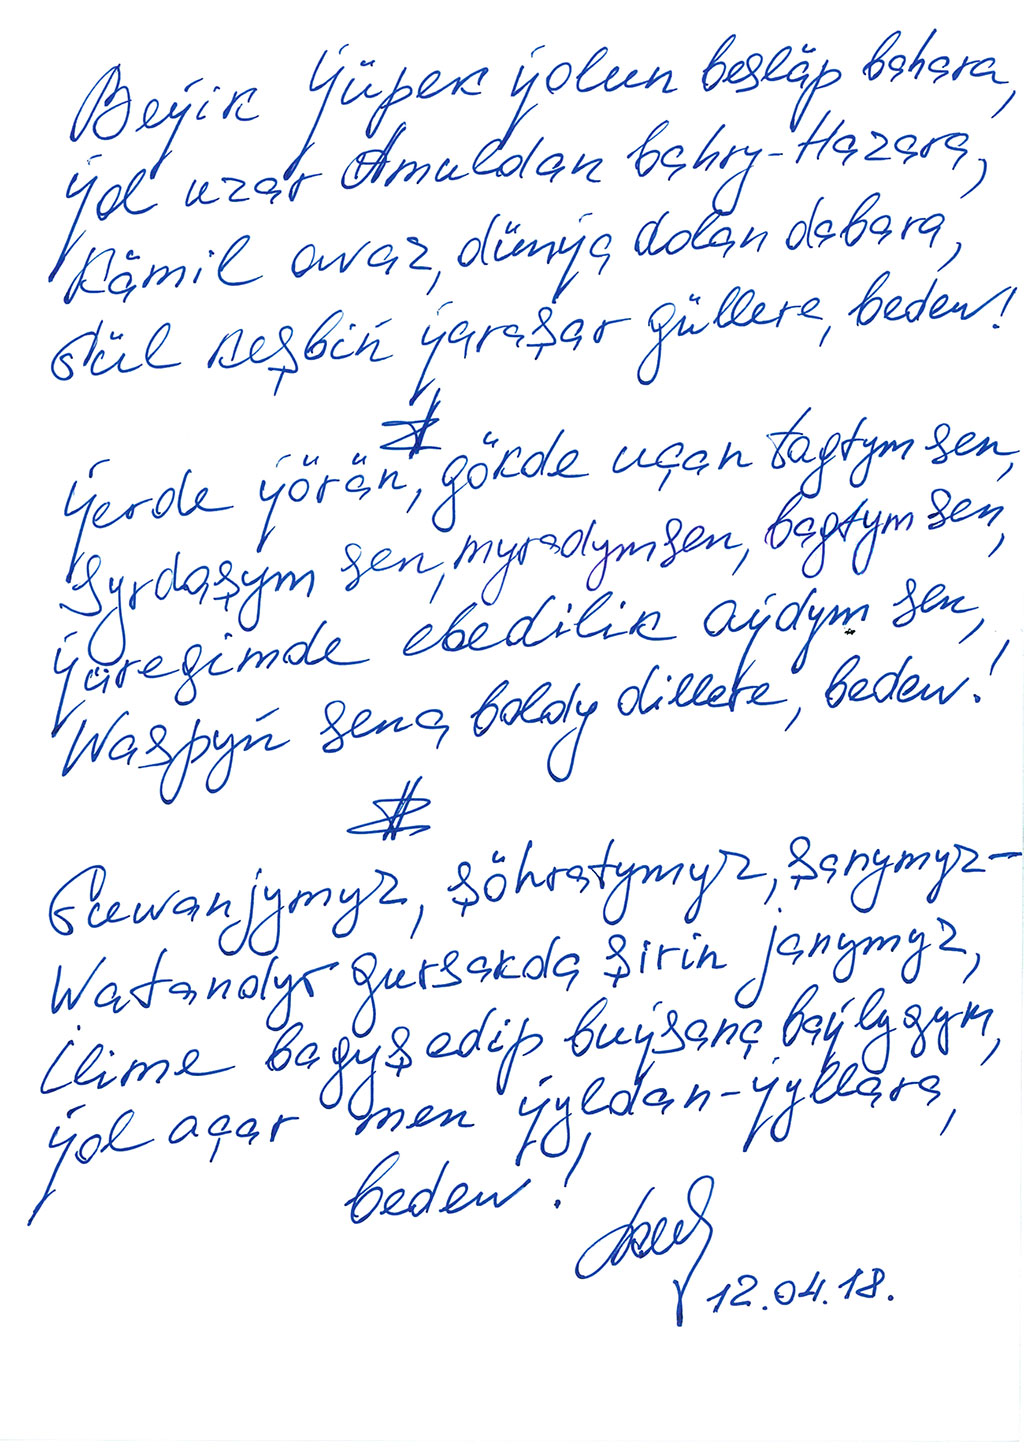 Beýik Ýüpek ýolun beslăp bahara,
Ýol uzar Amuldan bahry-Hazara,
Kämil owaz, dünýä dolan dabara,
Gül nesbiň ýaraşar güllere, bedew!
Ýerde ýörän, gökde uçan tagtym sen,
Syrdaşym sen, myradym sen, bagtym sen,
Ýüregimde ebedilik aýdym sen,
Waspyň sena boldy dillere, bedew!
Guwanjymyz, şöhratymyz, şanymyz—
Watandyr gursakda şirin janymyz,
Ilime bagyş edip buýsanç baýlygym,
Ýol açar men ýyldan-ýyllara,
bedew!
12.04.18.